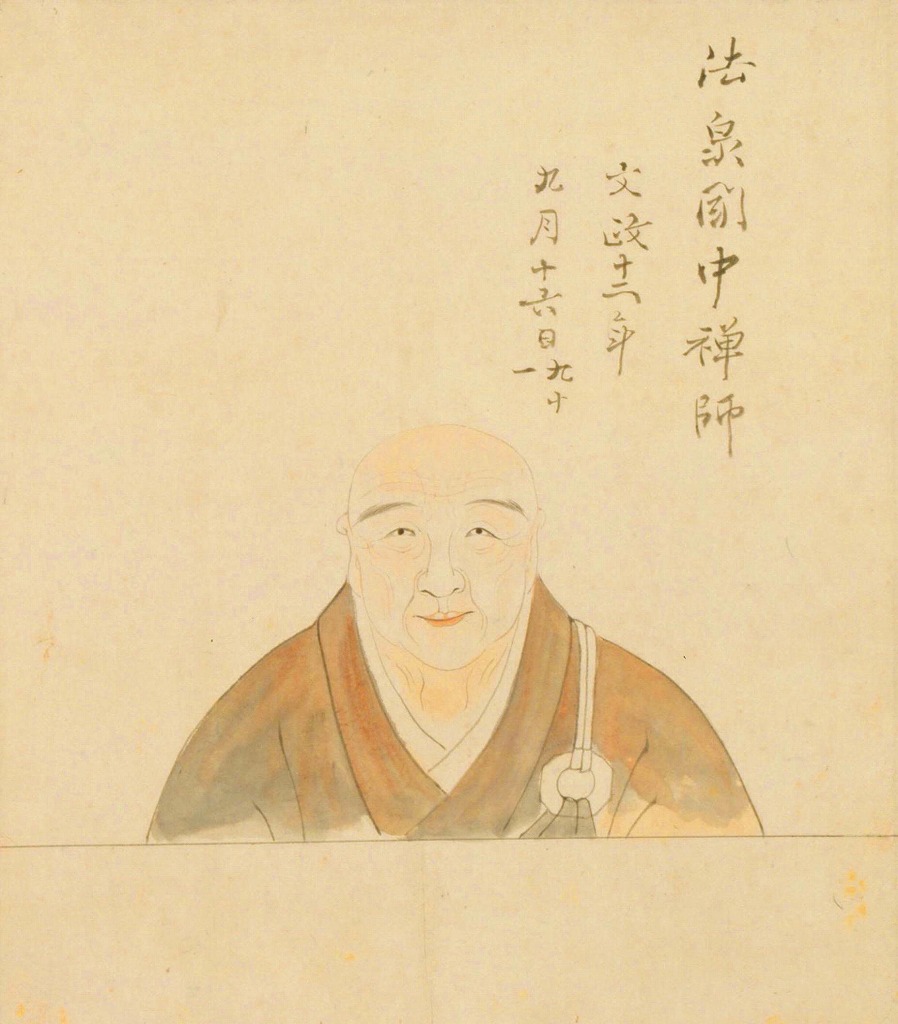 法泉聞中禅師
文政十二年
九月十六日九十
一